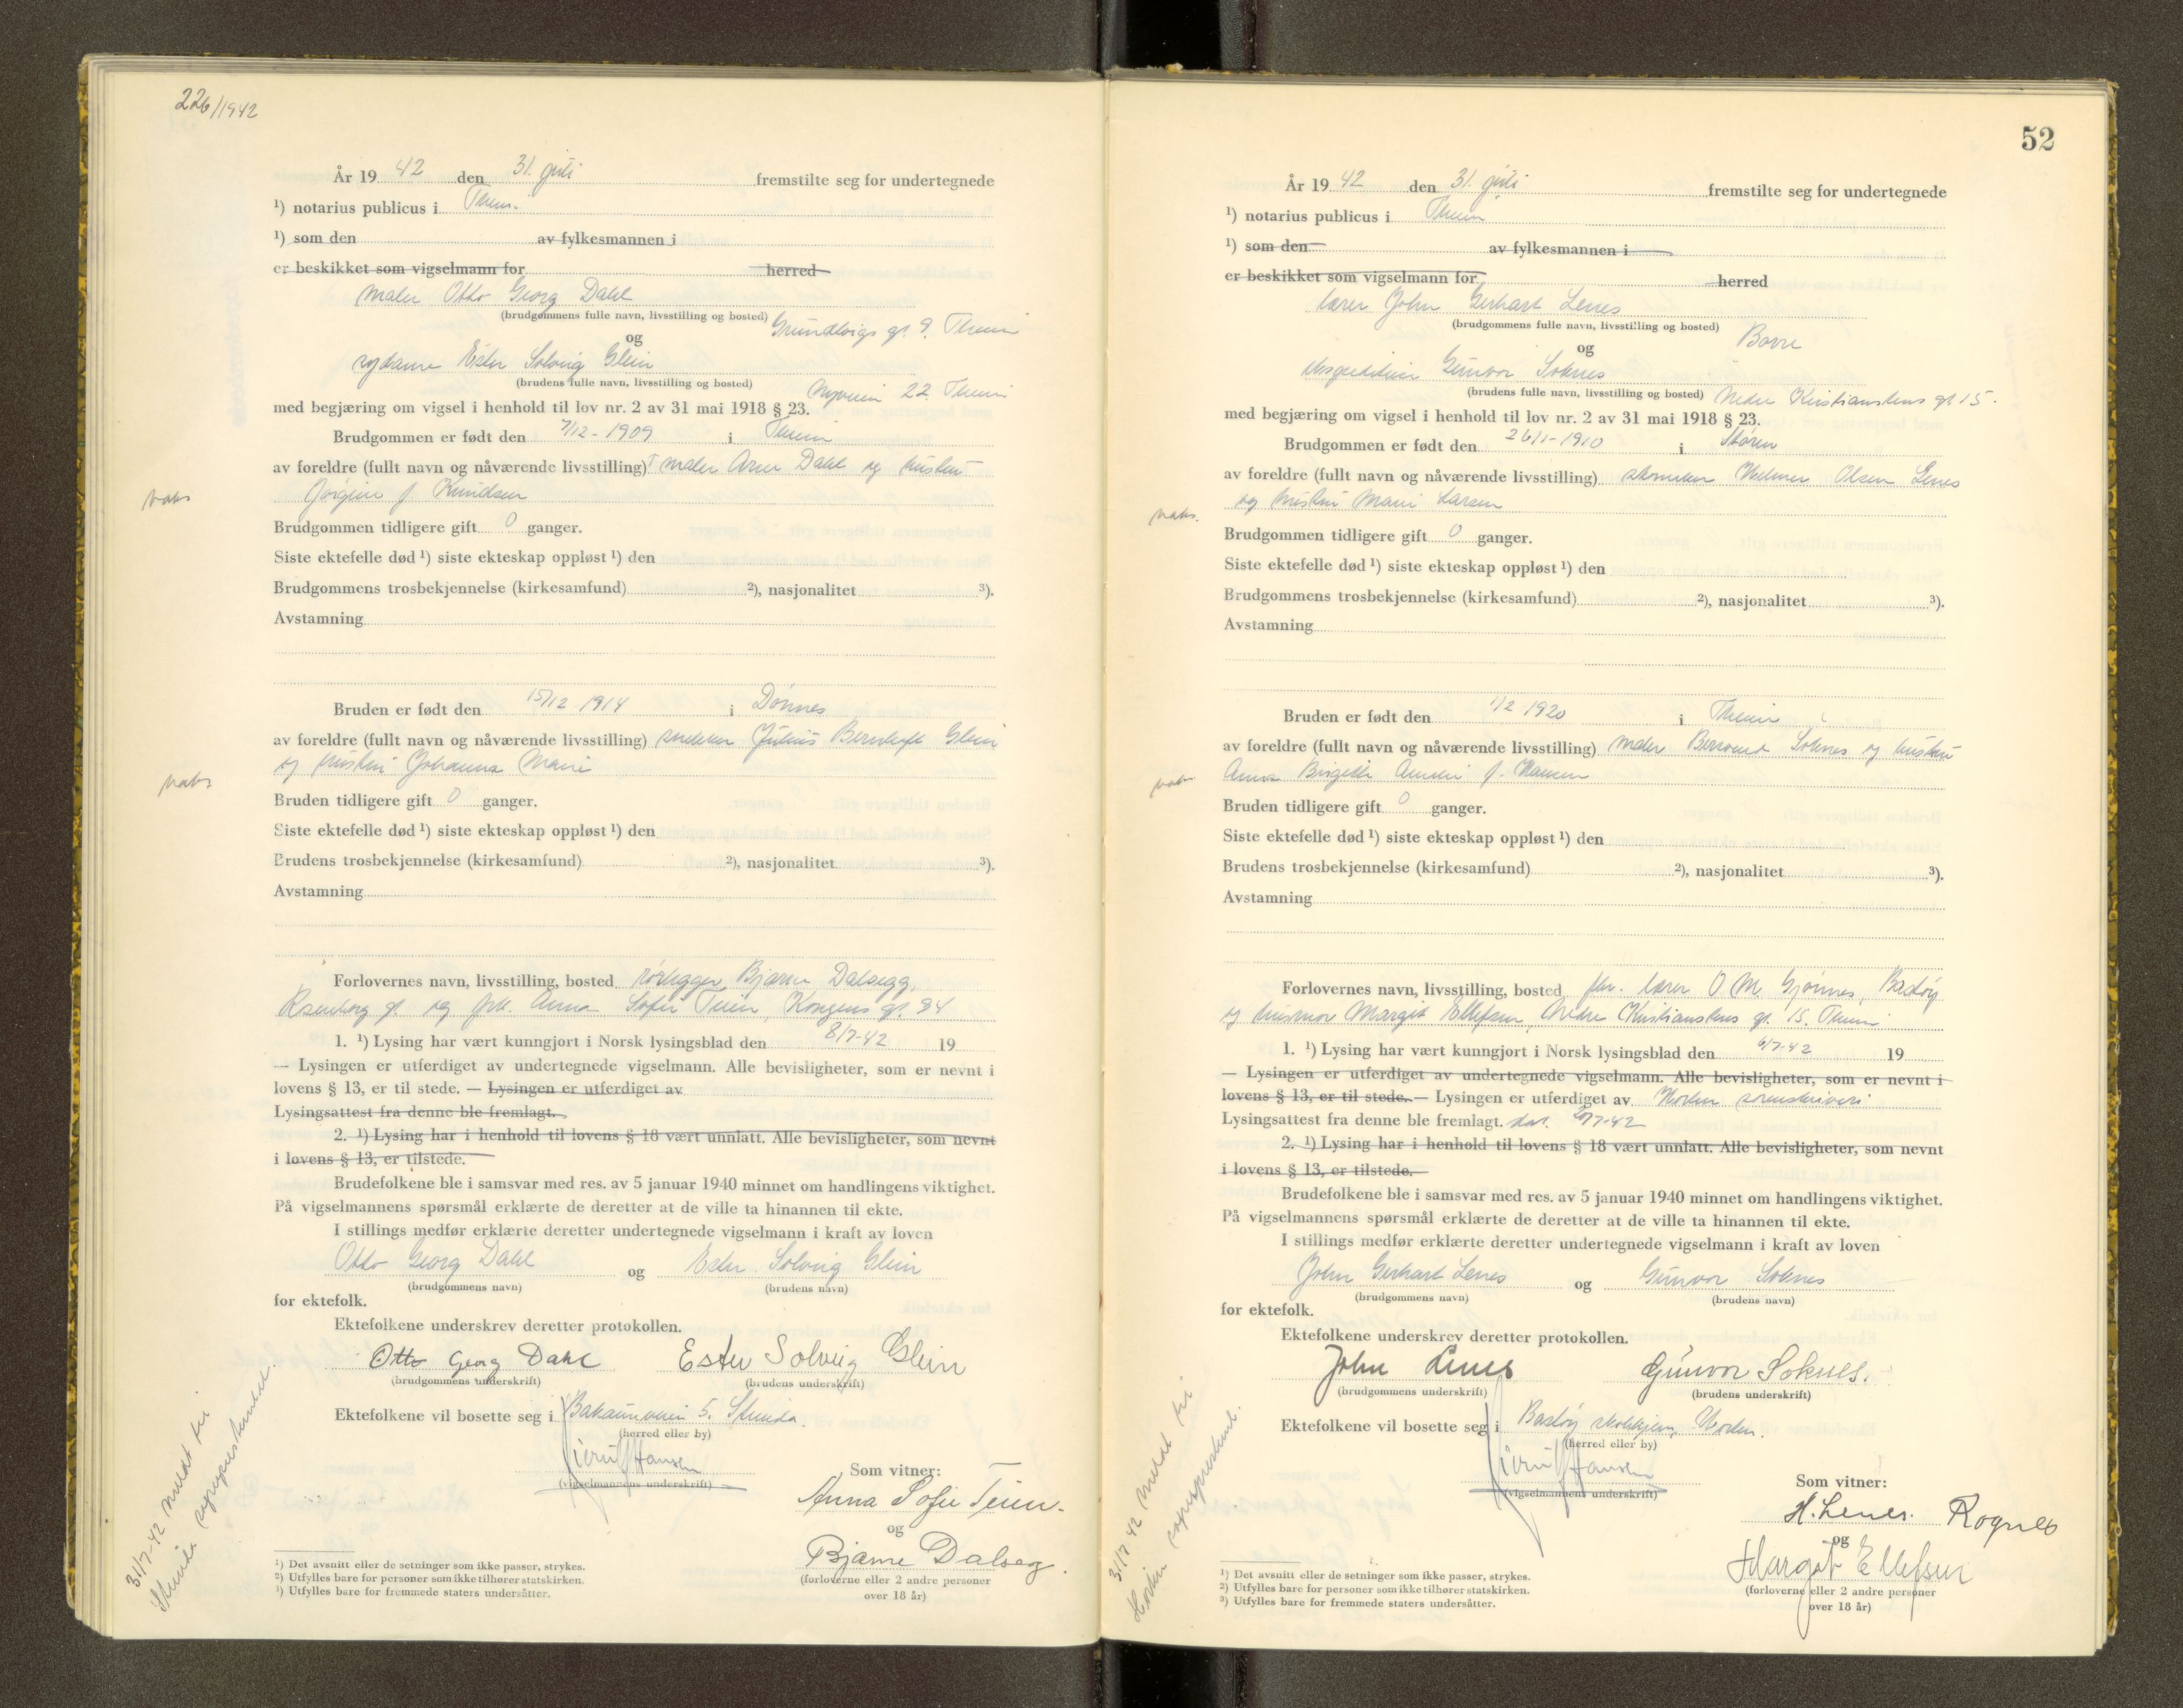 226/1942
År 19 42 den 31. juli fremstilte seg for undertegnede
¹) notarius publicus i Thm.
¹) som den av fylkesmannen i
er beskikket som vigselmann for herred
maler Otto Georg Dahl
(brudgommens fulle navn, livsstilling og bosted) Grundtvigs gt. 9. Theim
og
sydame Ester Solveig Glein
(brudens fulle navn, livsstilling og bosted) Nyveien 22. Theim
med begjæring om vigsel i henhold til lov nr. 2 av 31 mai 1918 § 23.
Brudgommen er født den 7/12 - 1909 i Theim
av foreldre (fullt navn og nåværende livsstilling) maler Arne Dahl og hustru
Jørgine f. Knudsen
Brudgommen tidligere gift 0 ganger.
Siste ektefelle død ¹) siste ekteskap oppløst ¹) den
Brudgommens trosbekjennelse (kirkesamfund) ²), nasjonalitet ³).
Avstamning
Bruden er født den 15/12 1914 i Dønnes
av foreldre (fullt navn og nåværende livsstilling) snekker Julius Glein
og hustru Johanna Marie
Bruden tidligere gift 0 ganger.
Siste ektefelle død ¹) siste ekteskap oppløst ¹) den
Brudens trosbekjennelse (kirkesamfund) ²), nasjonalitet ³).
Avstamning
Forlovernes navn, livsstilling, bosted rørlegger Bjarne Dalsegg,
Rosenborg gt. og frk. Anna Sofie Teien, Kongens gt. 84
1. ¹) Lysing har vært kunngjort i Norsk lysingsblad den 8/7-42 19
— Lysingen er utferdiget av undertegnede vigselmann. Alle bevisligheter, som er nevnt i
lovens § 13, er til stede. — Lysingen er utferdiget av
Lysingsattest fra denne ble fremlagt.
2. ¹) Lysing har i henhold til lovens § 18 vært unnlatt. Alle bevisligheter, som nevnt
i lovens § 13, er tilstede.
Brudefolkene ble i samsvar med res. av 5 januar 1940 minnet om handlingens viktighet.
På vigselmannens spørsmål erklærte de deretter at de ville ta hinannen til ekte.
I stillings medfør erklærte deretter undertegnede vigselmann i kraft av loven
Otto Georg Dahl og Ester Solveig Glein
(brudgommens navn) (brudens navn)
for ektefolk.
Ektefolkene underskrev deretter protokollen.
Otto Georg Dahl Ester Solveig Glein
(brudgommens underskrift) (brudens underskrift)
Ektefolkene vil bosette seg i Bakaunveien 5. Strinda.
(herred eller by)
Hansen
(vigselmannens underskrift)
Som vitner:
Anna Sofie Teien.
og
Bjarne Dalseg.
(forloverne eller 2 andre personer
over 18 år)
31/7-42 meldt til
Strinda
¹) Det avsnitt eller de setninger som ikke passer, strykes.
²) Utfylles bare for personer som ikke tilhører statskirken.
³) Utfylles bare for fremmede staters undersåtter.
52
År 19 42 den 31. juli fremstilte seg for undertegnede
¹) notarius publicus i Theim
¹) som den av fylkesmannen i
er beskikket som vigselmann for herred
lærer John Gerhart Lenes
(brudgommens fulle navn, livsstilling og bosted) Borre
og
Gunvor Soknes
(brudens fulle navn, livsstilling og bosted) Nedre Kristianstens gt 15.
med begjæring om vigsel i henhold til lov nr. 2 av 31 mai 1918 § 23.
Brudgommen er født den 26/1-1910 i Støren
av foreldre (fullt navn og nåværende livsstilling) skomaker Hilmer Olsen Lenes
og hustru Marie Larsen
Brudgommen tidligere gift 0 ganger.
Siste ektefelle død ¹) siste ekteskap oppløst ¹) den
Brudgommens trosbekjennelse (kirkesamfund) ²), nasjonalitet ³).
Avstamning
Bruden er født den 1/2 1920 i Theim
av foreldre (fullt navn og nåværende livsstilling) maler Soknes og hustru
Anna Birgitte f. Hansen
Bruden tidligere gift 0 ganger.
Siste ektefelle død ¹) siste ekteskap oppløst ¹) den
Brudens trosbekjennelse (kirkesamfund) ²), nasjonalitet ³).
Avstamning
Forlovernes navn, livsstilling, bosted fhv. lærer O. M. Gjönnes, Bastöy
og husmor Margit Ellefsen, Nedre Kristianstens gt. 15. Theim
1. ¹) Lysing har vært kunngjort i Norsk lysingsblad den 6/7-42 19
— Lysingen er utferdiget av undertegnede vigselmann. Alle bevisligheter, som er nevnt i
lovens § 13, er til stede. — Lysingen er utferdiget av Horten sorenskriveri
Lysingsattest fra denne ble fremlagt. dat. /7-42
2. ¹) Lysing har i henhold til lovens § 18 vært unnlatt. Alle bevisligheter, som nevnt
i lovens § 13, er tilstede.
Brudefolkene ble i samsvar med res. av 5 januar 1940 minnet om handlingens viktighet.
På vigselmannens spørsmål erklærte de deretter at de ville ta hinannen til ekte.
I stillings medfør erklærte deretter undertegnede vigselmann i kraft av loven
John Gerhart Lenes og Gunvor Soknes
(brudgommens navn) (brudens navn)
for ektefolk.
Ektefolkene underskrev deretter protokollen.
John Lenes Gunvor Soknes.
(brudgommens underskrift) (brudens underskrift)
Ektefolkene vil bosette seg i Bastöy skolehjem, Horten.
(herred eller by)
Hansen
(vigselmannens underskrift)
Som vitner:
H. Lenes. Rognes
og
Margit Ellefsen
(forloverne eller 2 andre personer
over 18 år)
31/7 42 meldt til
¹) Det avsnitt eller de setninger som ikke passer, strykes.
²) Utfylles bare for personer som ikke tilhører statskirken.
³) Utfylles bare for fremmede staters undersåtter.